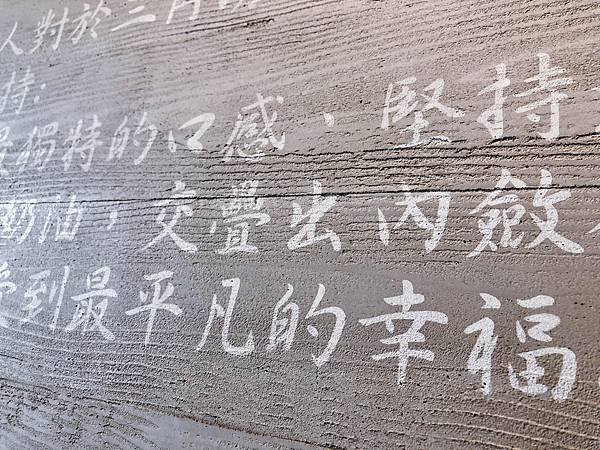 人對於三月
持：
獨特的口感、堅持
奶油，交疊出內斂
受到最平凡的幸福